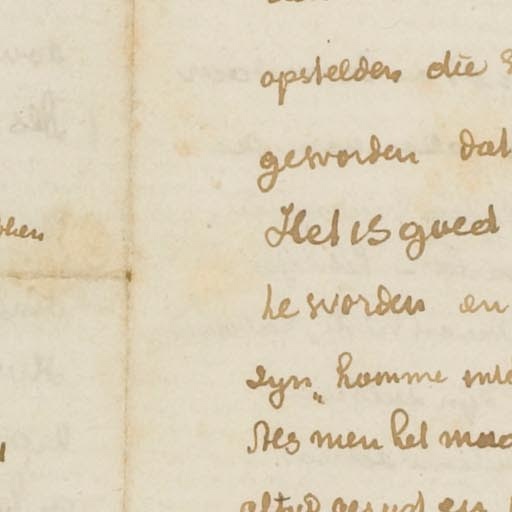 opstelden die
geworden dat
Het is goed
te worden en
zyn „ homme
Als men het
altyd